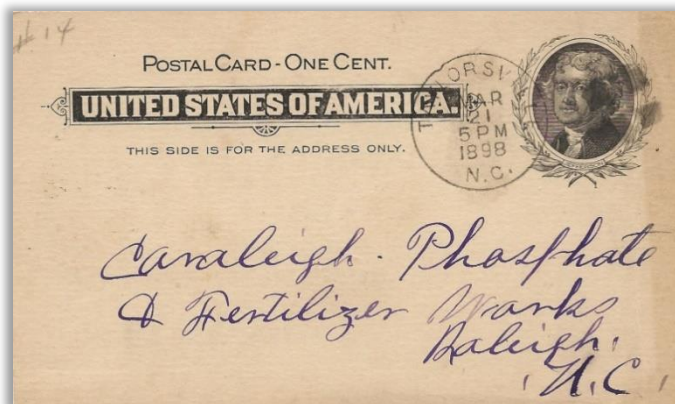 #14
POSTAL CARD - ONE CENT.
UNITED STATES OF AMERICA.
THIS SIDE IS FOR THE ADDRESS ONLY.
MAR
21
5 PM
1898
N.C.
Caraleigh. Phosphate
& Fertilizer Works
Raleigh,
N.C.